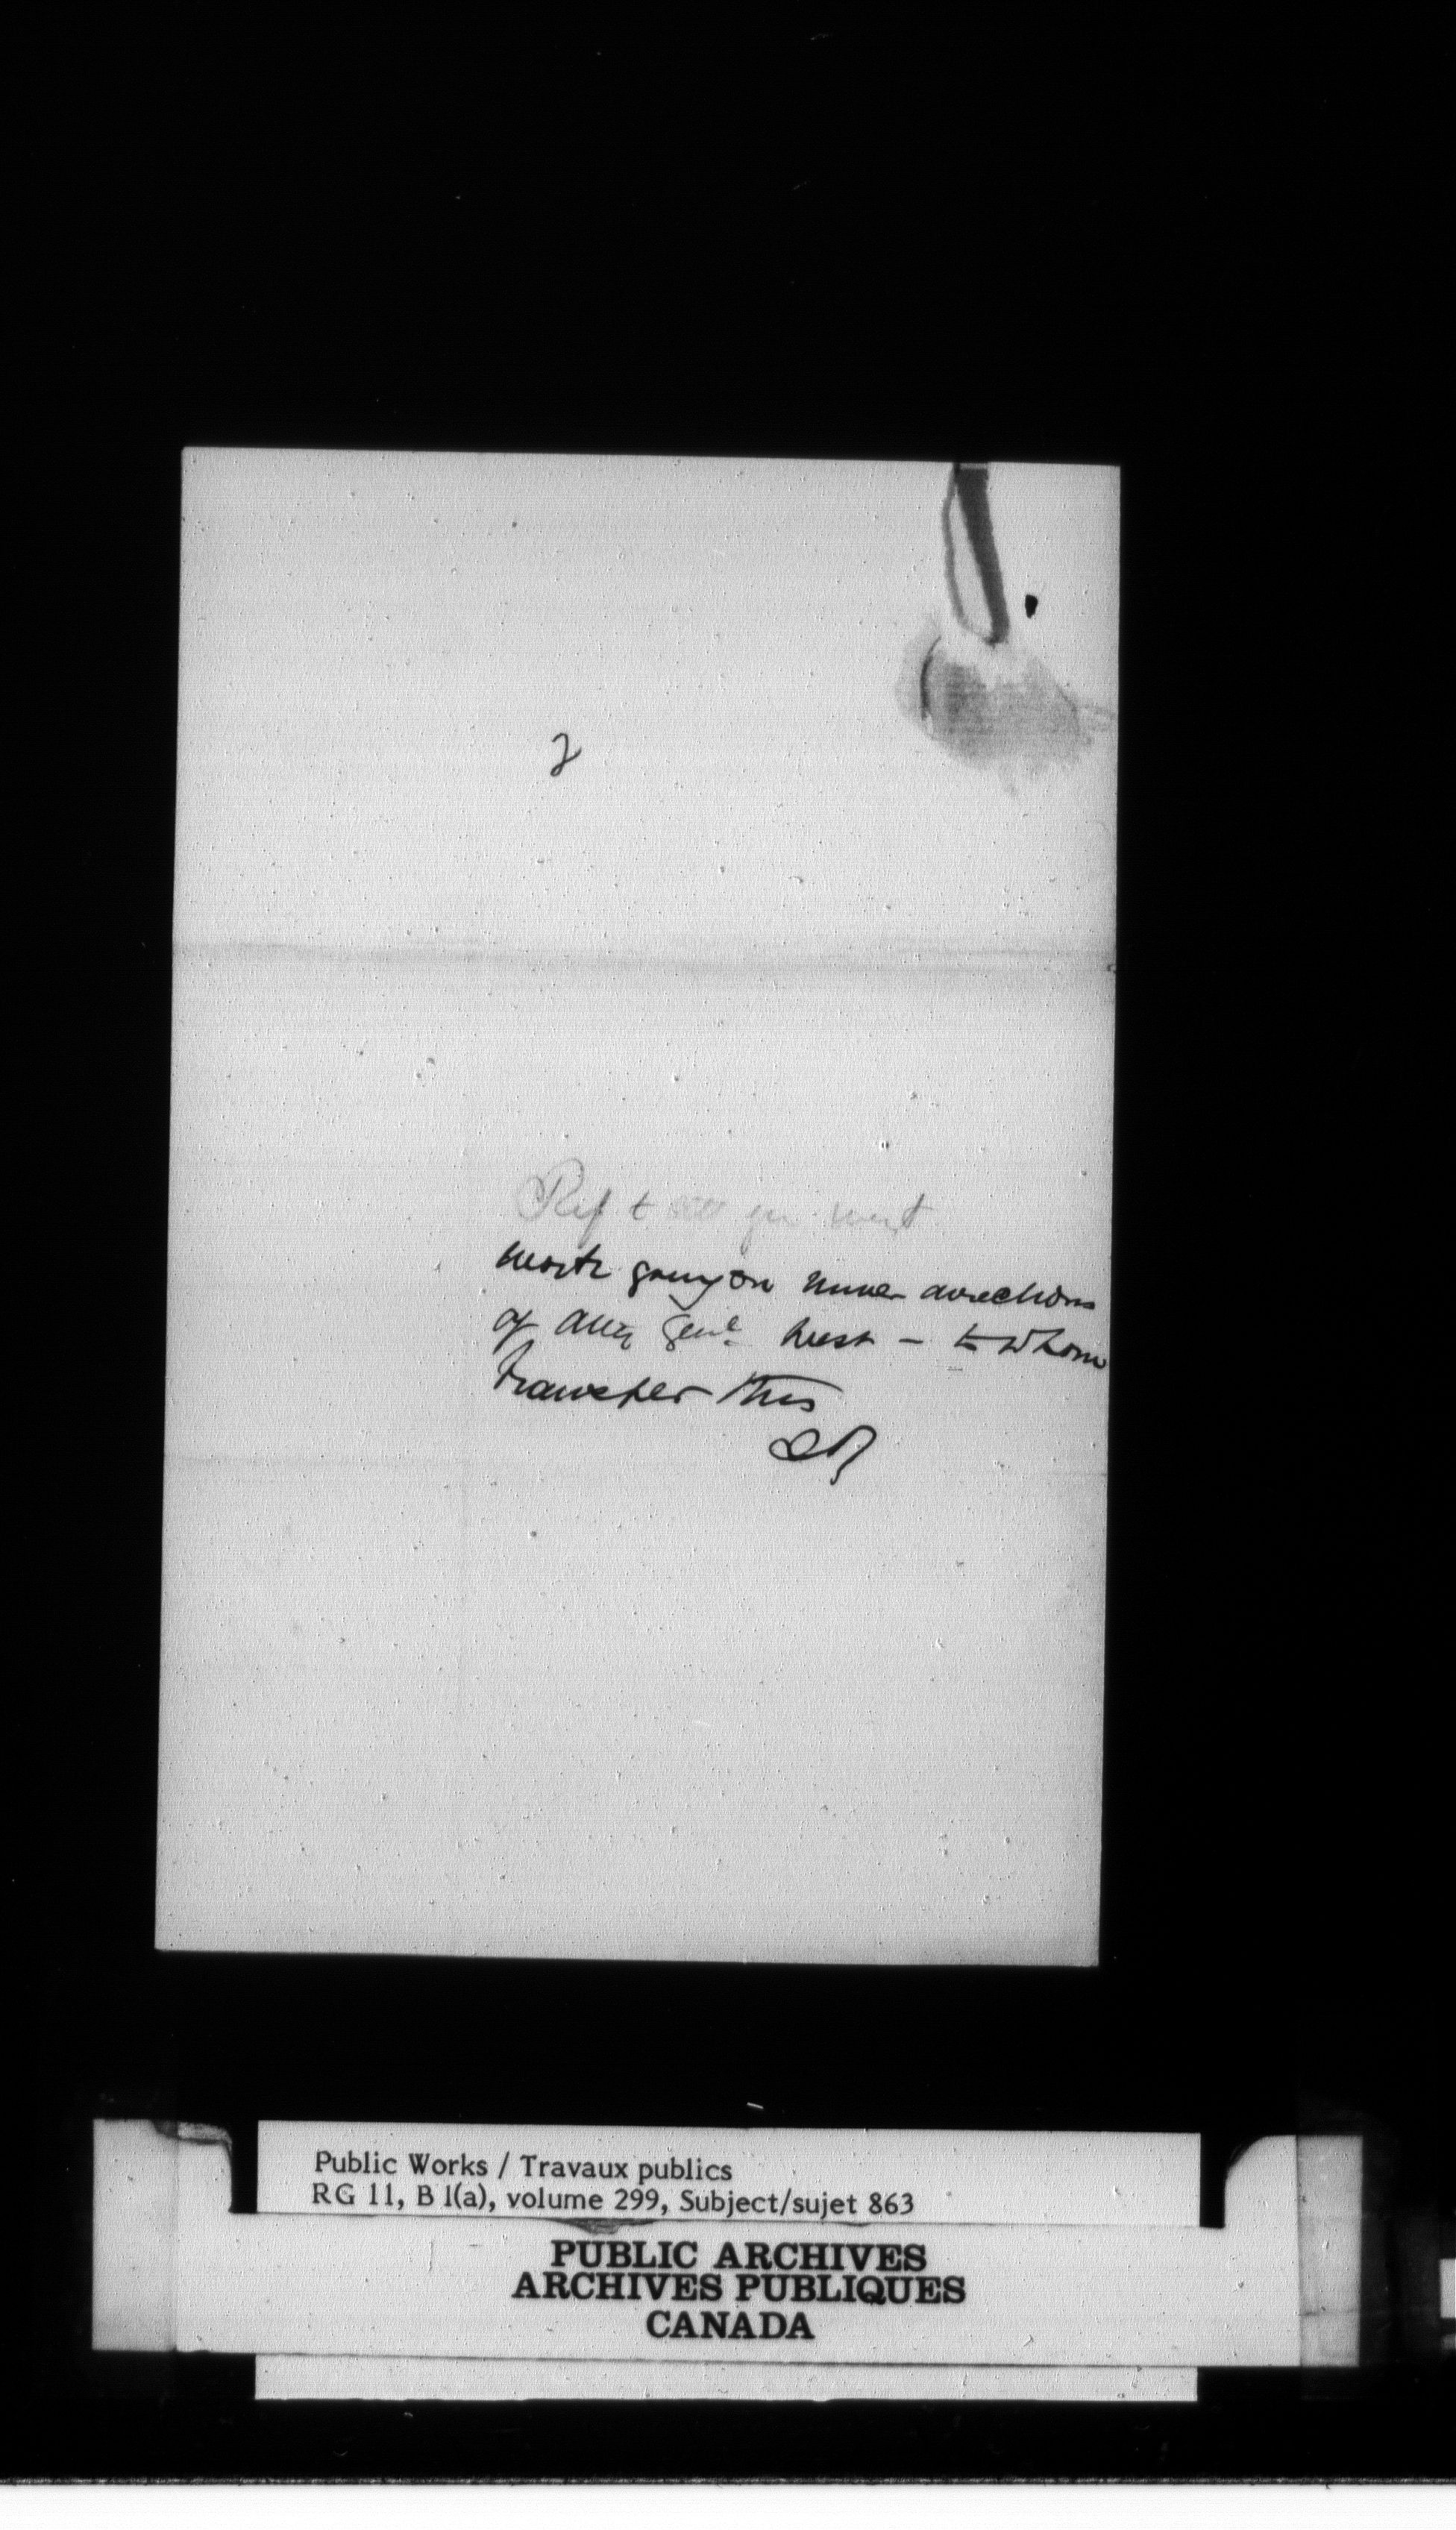 2
Ref t att gen west
work going on under directions
of Atty Genl West - to whom
transfer this
Public Works / Travaux publics
RG 11, B 1(a), volume 299, Subject/sujet 863
PUBLIC ARCHIVES
ARCHIVES PUBLIQUES
CANADA